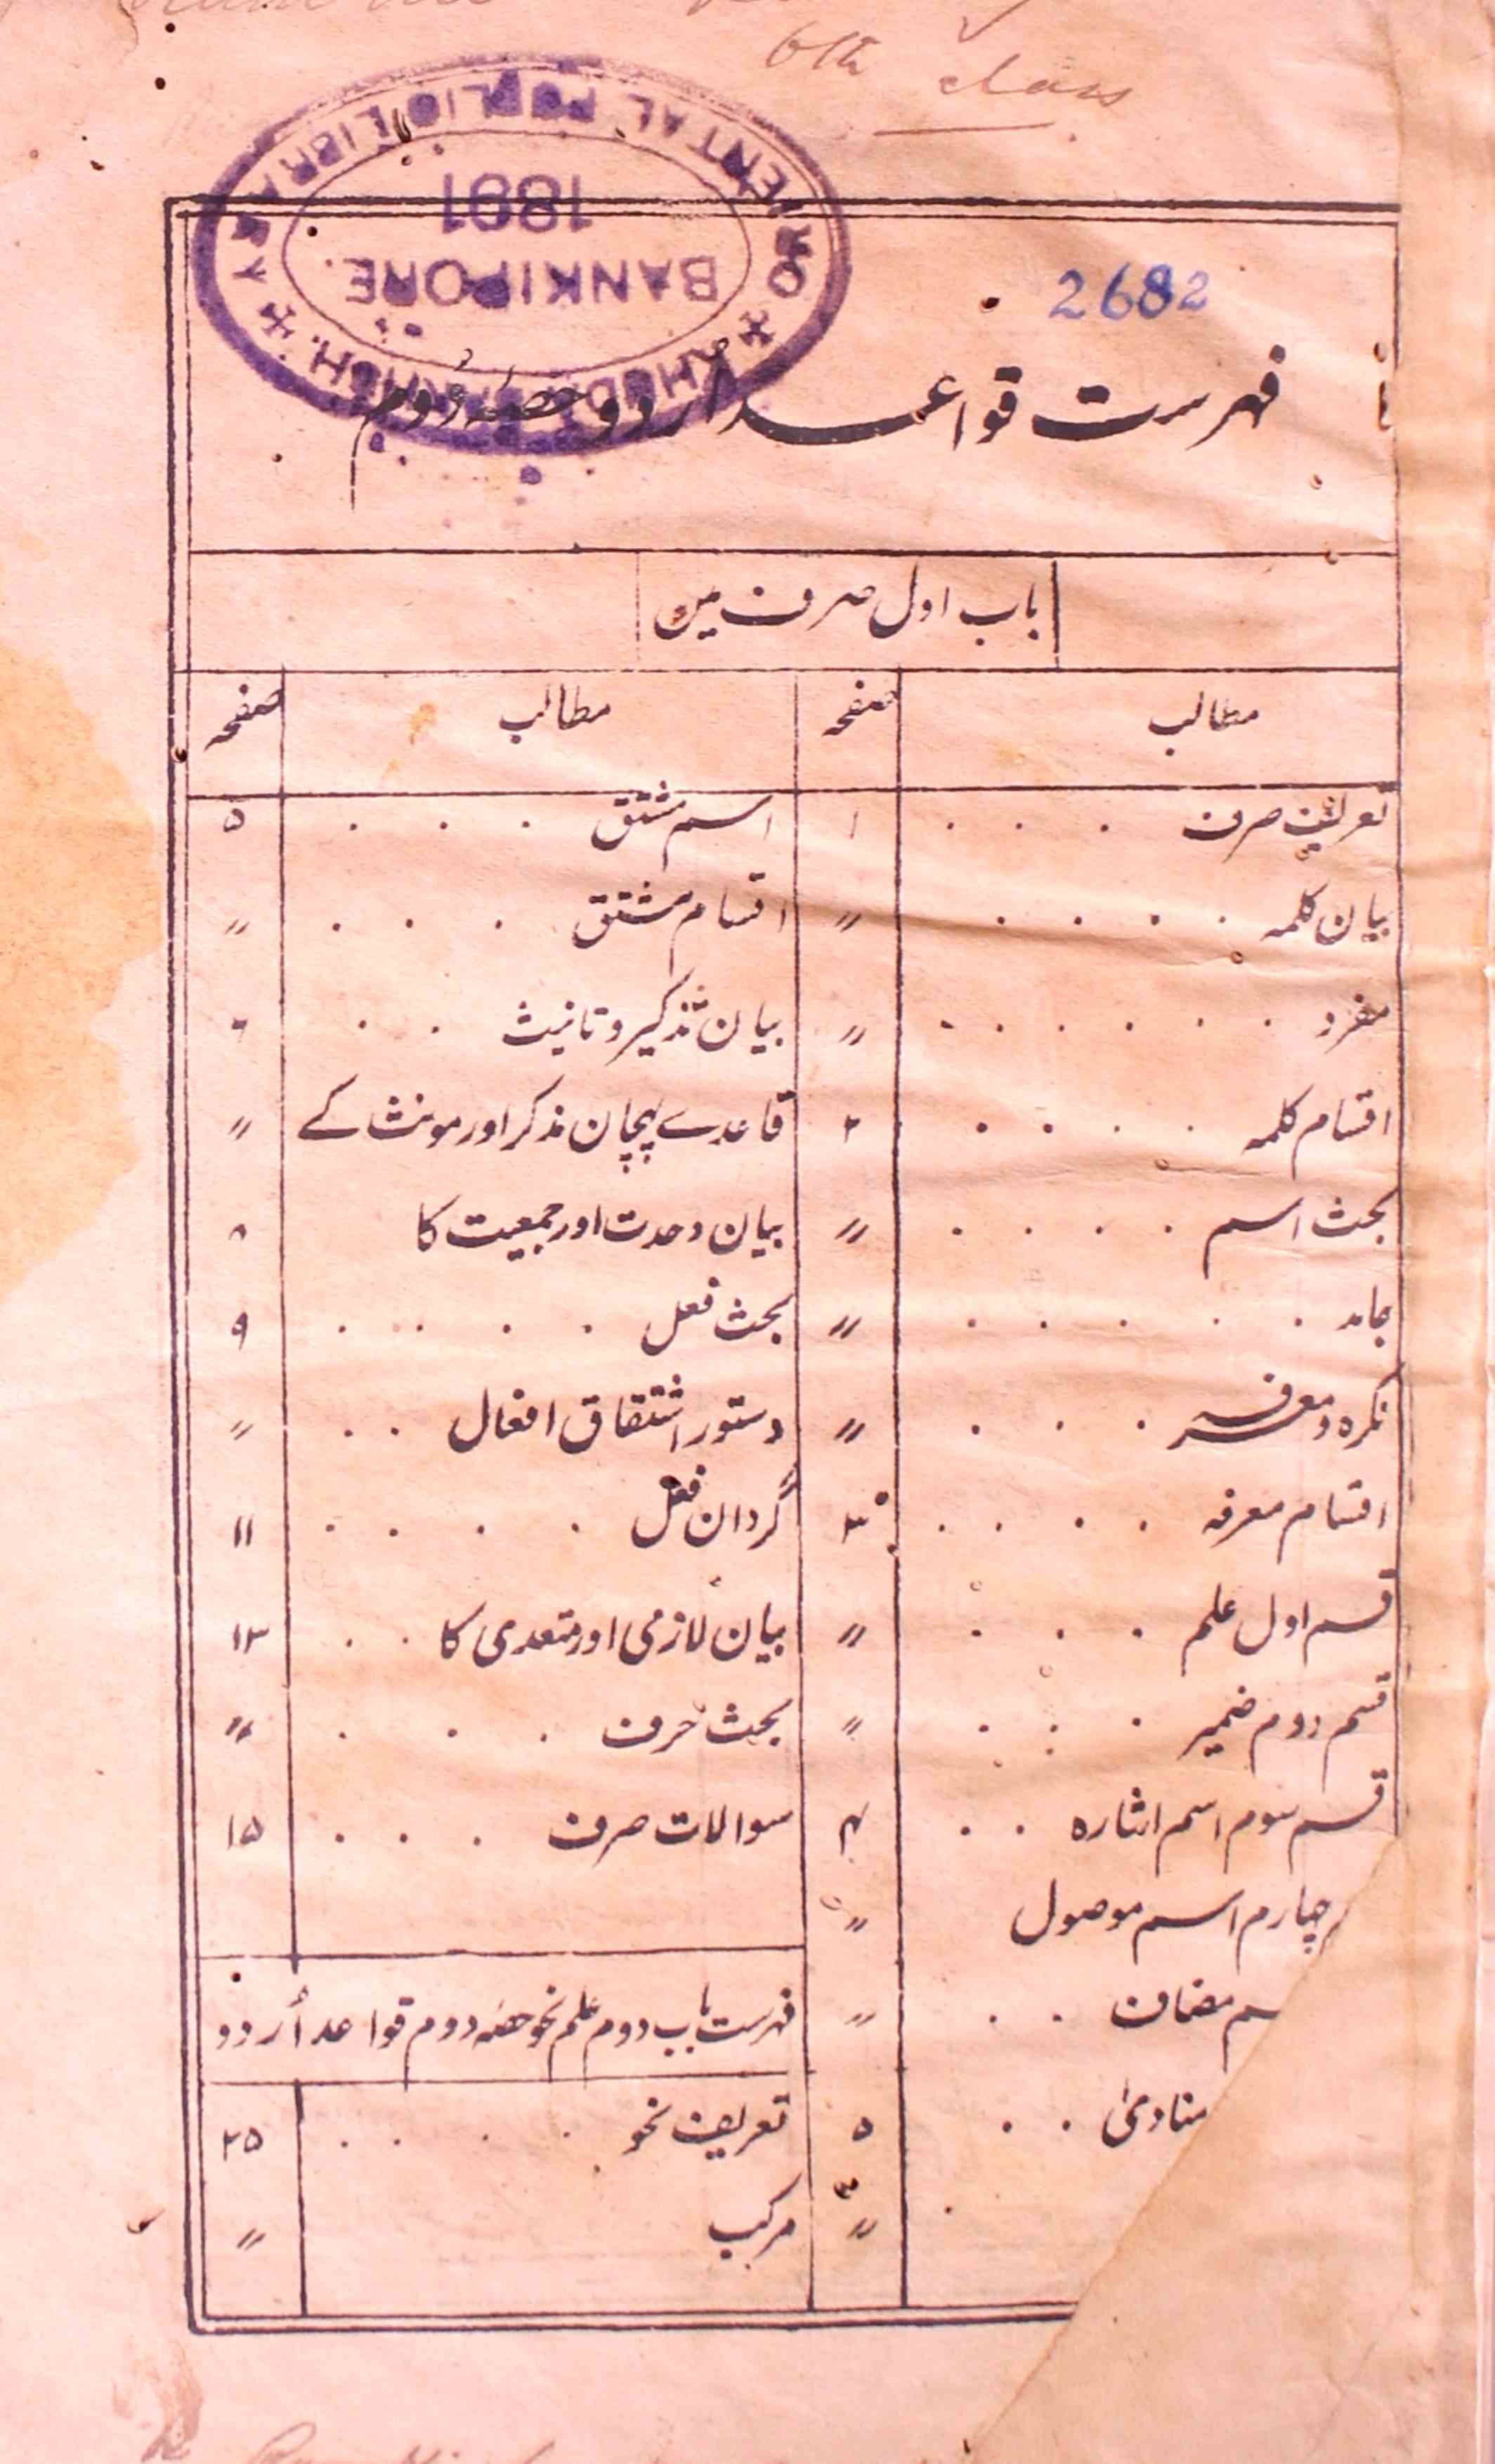 6th class
KHUDA BAKHSH ORIENTAL PUBLIC LIBRARY
BANKIPORE.
1891
2682
فہرست قواعد اردو حصہ دوم
باب اول صرف میں
مطالب صفحہ
تعریف صرف . . . ۱
بیان کلمہ . . . . "
مفرد . . . . . . "
اقسام کلمہ . . . . ۲
بحث اسم . . . . "
جامد . . . . . "
نکرہ و معرفہ . . . "
اقسام معرفہ . . . . ۳
قسم اول علم . . . "
قسم دوم ضمیر . . . "
قسم سوم اسم اشارہ . . ۴
چارم اسم موصول "
سم مضاف . . "
منادیٰ . . ۵
"
مطالب صفحہ
اسم مشتق . . . ۵
اقسام مشتق . . . "
بیان تذکیر و تانیث . . ۶
قاعدے پہچان مذکر اور مونث کے "
بیان وحدت اور جمعیت کا ۸
بحث فعل . . . . ۹
دستور اشتقاق افعال . . "
گردان فعل . . . . ۱۱
بیان لازمی اور متعدی کا . . ۱۳
بحث حرف . . . "
سوالات صرف . . . ۱۵
فہرست باب دوم علم نحو حصہ دوم قواعد اُردو
تعریف نحو . . . . ۲۵
مرکب "